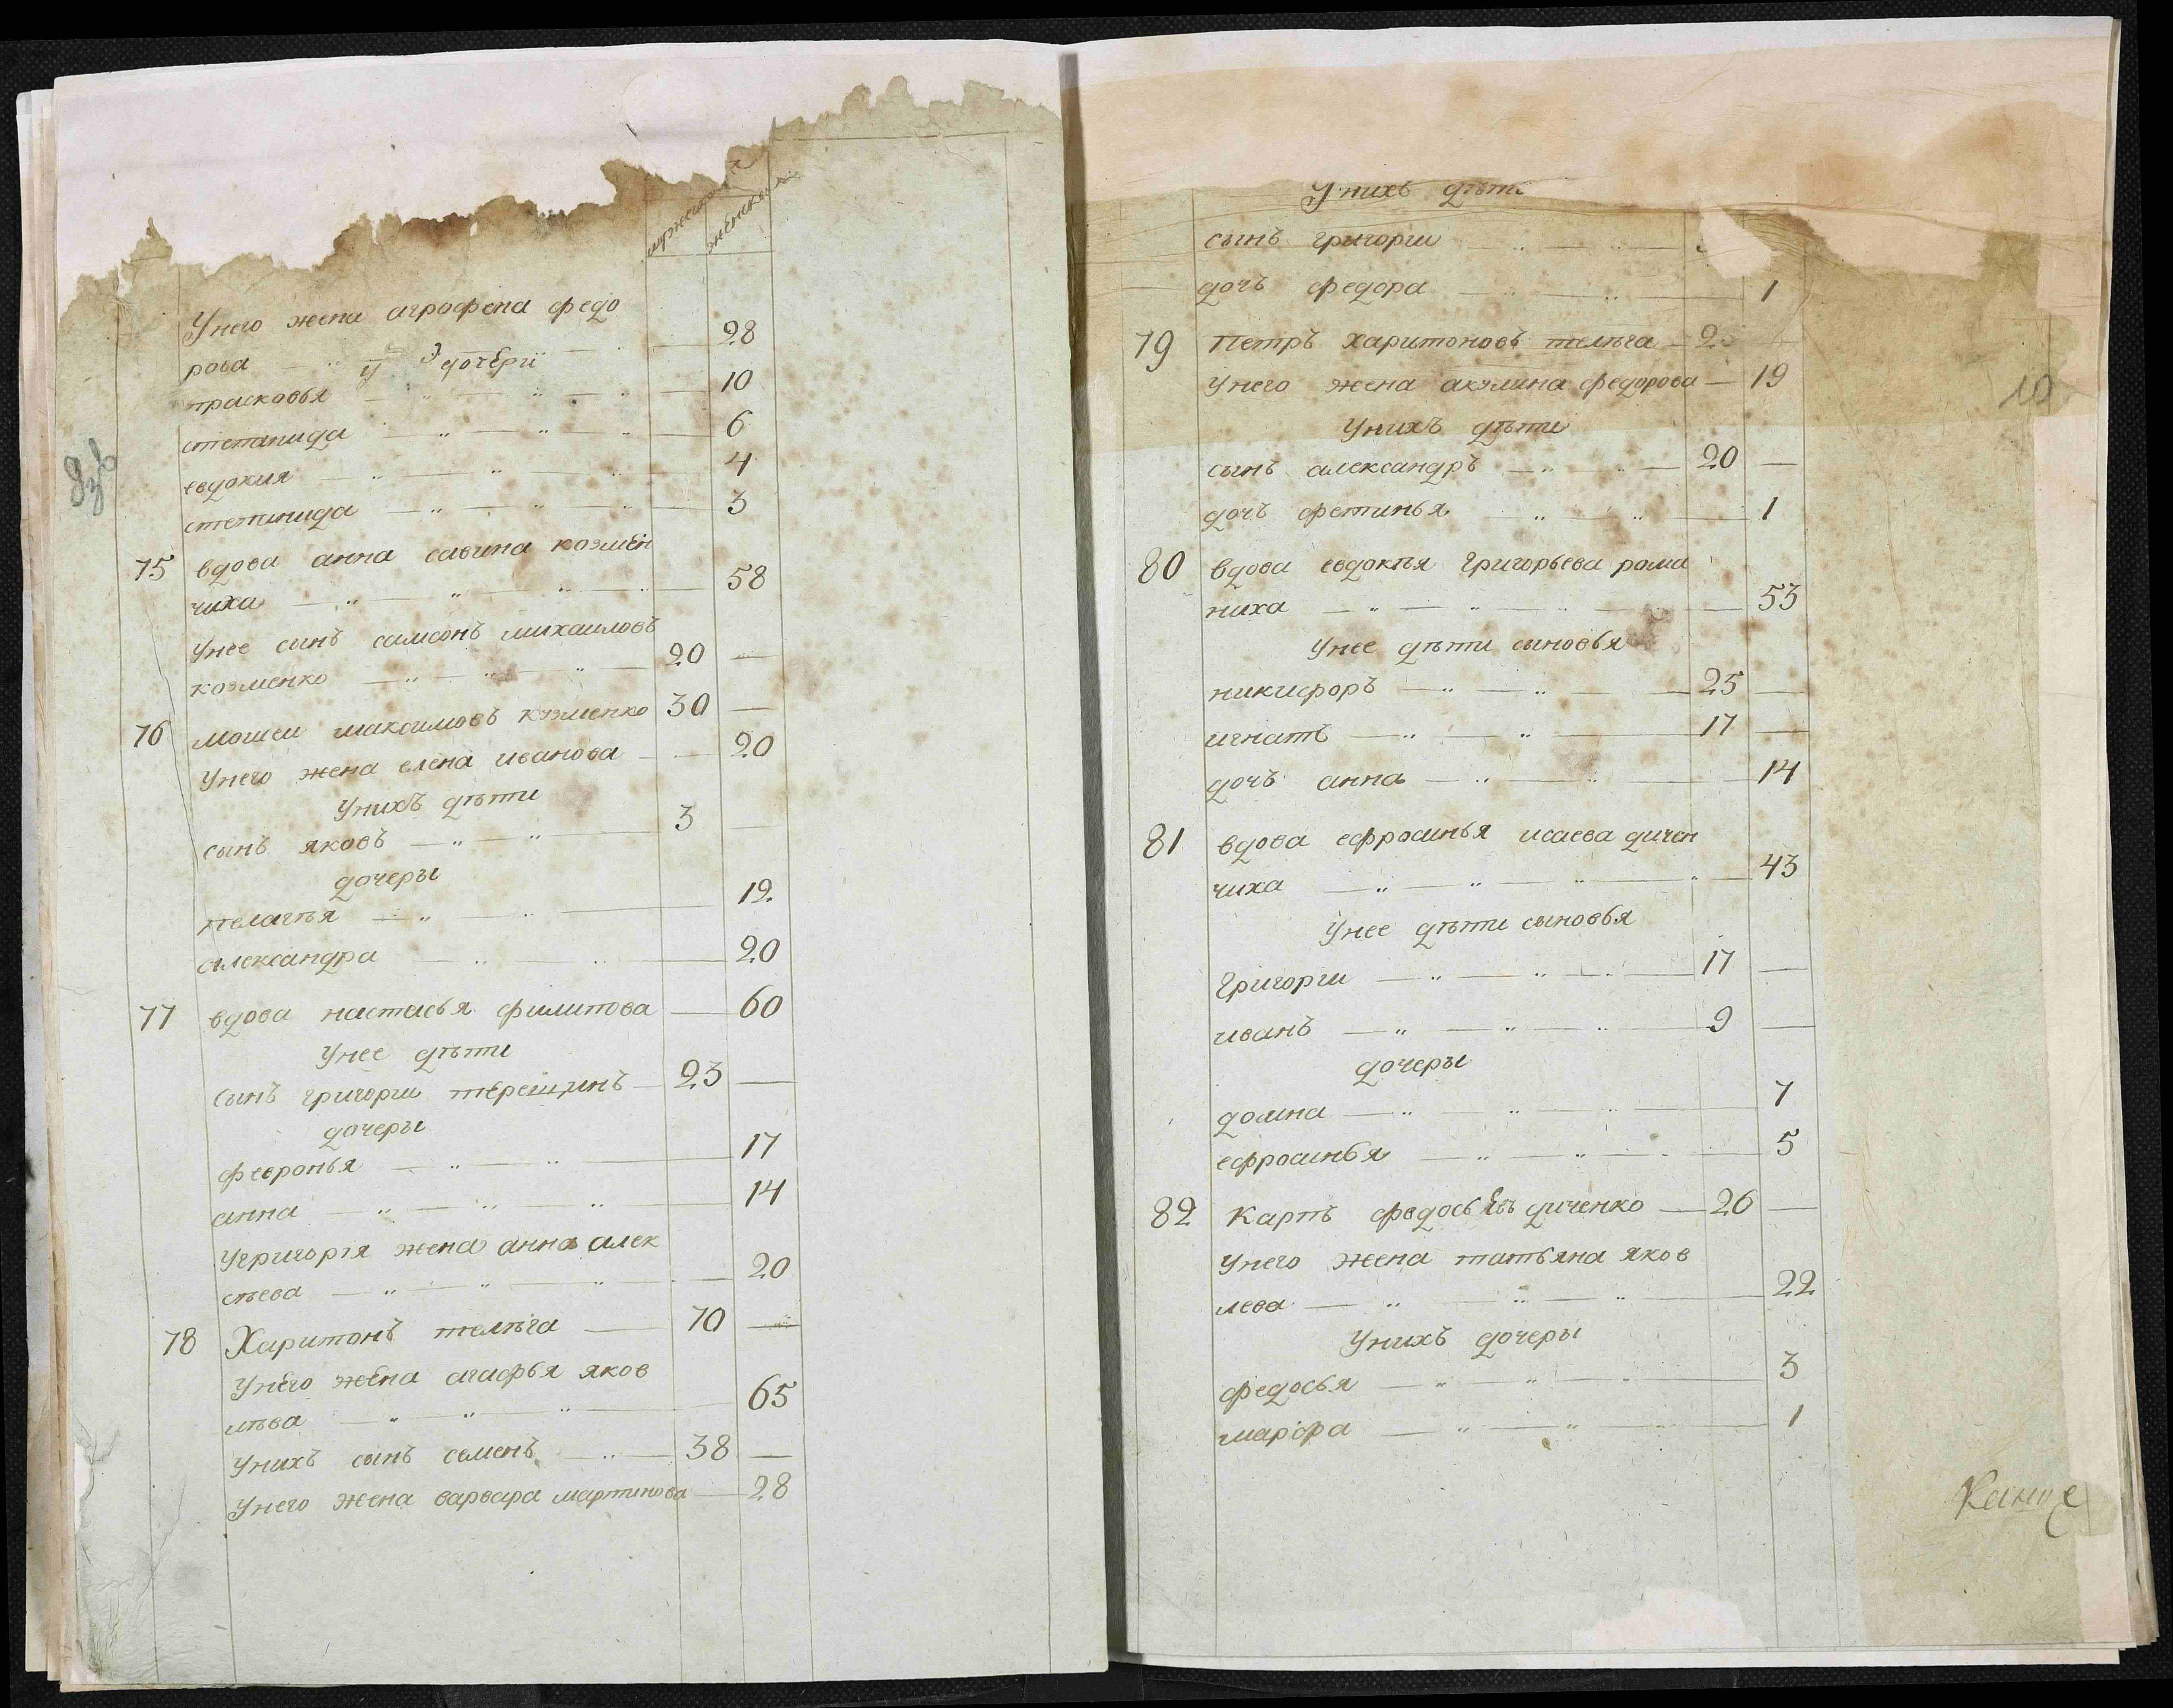 мужеска
женска
Унего жена агрофена федо
рова 28
у 3 дочери
прасковья 10
степанида 6
евдокия 4
степанида 3
75 вдова анна савина козмен
чиха 58
Унее сынъ самсонъ михаиловъ
козменко 20
76 моисеи максимовъ козменко 30
Унего жена елена иванова 20
Унихъ дѣти
сынъ яковъ 3
дочеры
пелагѣя 12
александра 20
77 вдова настасья филипова 60
Унее дѣти
сынъ григории терещинъ 23
дочеры
февронья 17
анна 14
Угригория жена анна алек
сѣева 20
78 Харитонъ телѣга 70
Унего жена агафья яков
лѣва 65
Унихъ сынъ семенъ 38
Унего жена варвара мартинова 28
Унихъ дѣти
сынъ григории
дочъ федора 1
79 Петръ харитоновъ телѣга
Унего жена акэлина федорова 19
Унихъ дѣти
сынъ александръ 20
дочъ фетинья 1
80 вдова евдокѣя григорьева рома
ниха 53
Унее дѣти сыновья
никифоръ 25
игнатъ 17
дочъ анна 14
81 вдова ефросинья исаева дичен
чиха 43
Унее дѣти сыновья
Григории 17
иванъ 9
дочеры
домна 7
ефросинья 5
82 Карпъ федосѣевъ диченко 26
Унего жена татьяна яков
лева 22
Унихъ дочеры
федосья 3
марфа 1
10